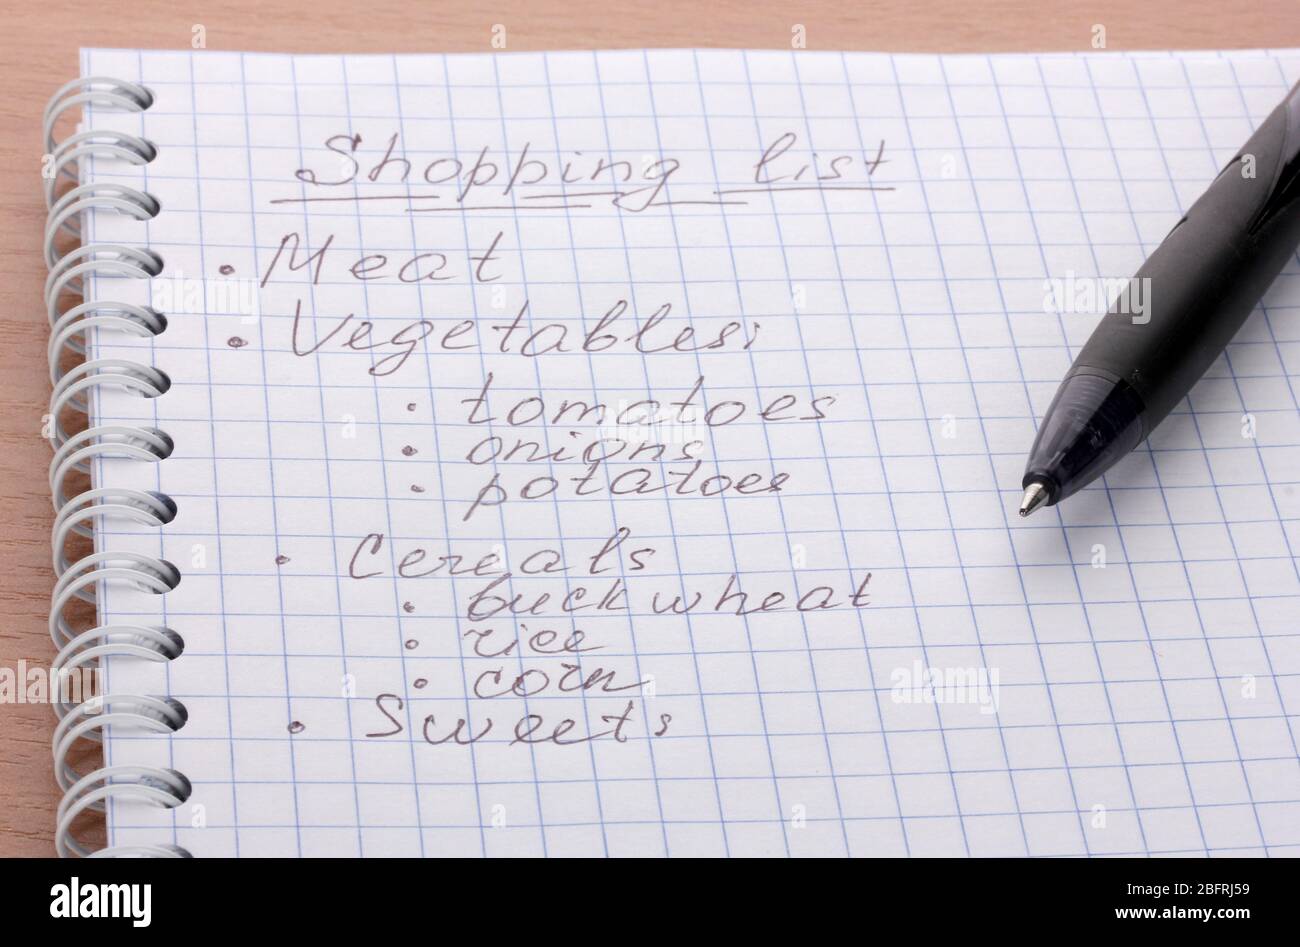 Shopping list
• Meat
• Vegetables:
• tomatoes
• onions
• potatoes
• Cereals
• buckwheat
• rice
• corn
• Sweets
alamy
alamy
Image ID: 2BFRJ59
www.alamy.com